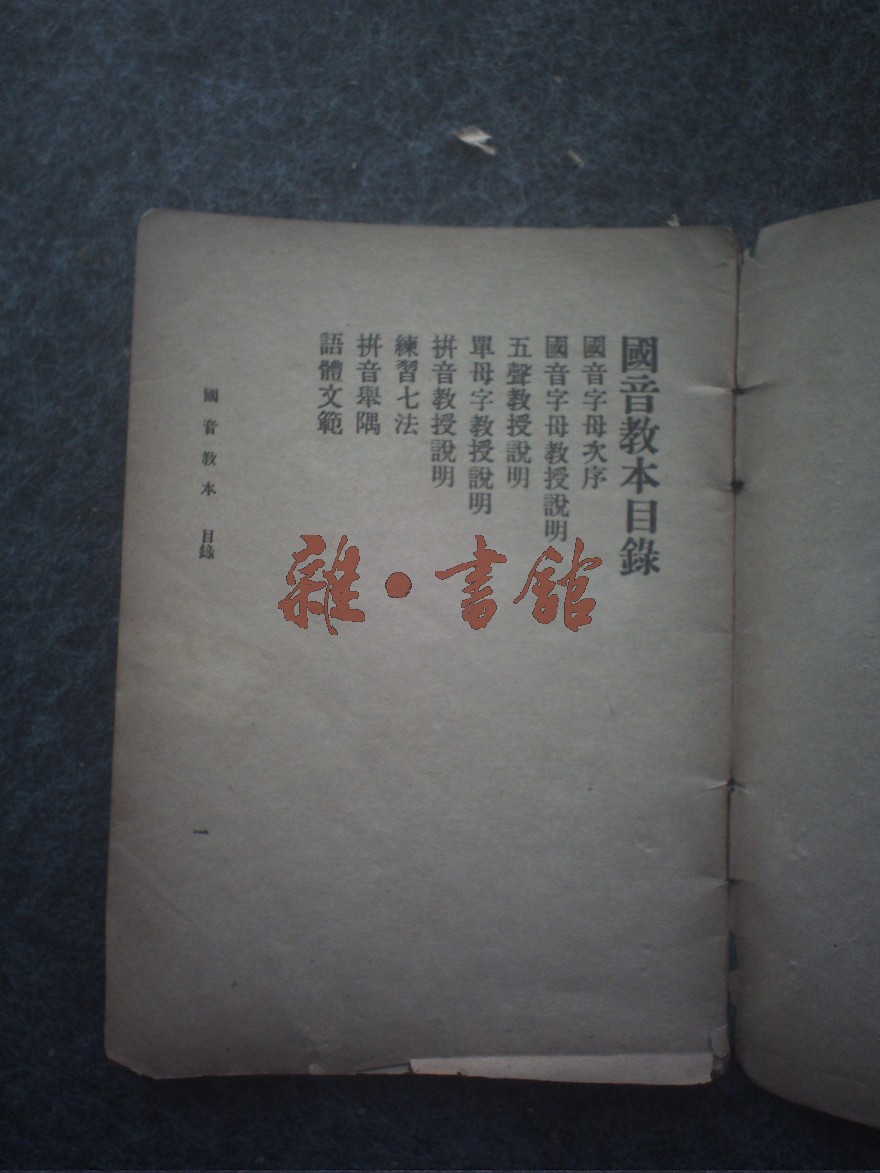 國音教本目錄
國音字母次序
國音字母教授說明
五聲教授說明
單母字教授說明
拼音教授說明
練習七法
拼音舉隅
語體文範
國音教本 目錄
一
雜·書館